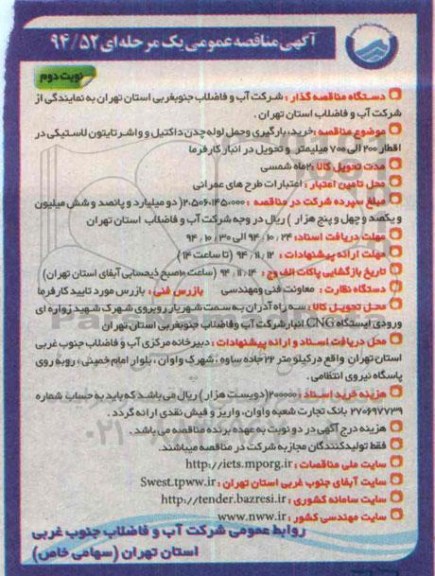 آگهی مناقصه عمومی یک مرحله ای ۹۴/۵۲
نوبت دوم
دستگاه مناقصه گذار : شرکت آب و فاضلاب جنوبغربی استان تهران به نمایندگی از
شرکت آب و فاضلاب استان تهران .
موضوع مناقصه :خرید، بارگیری وحمل لوله چدن داکتیل و واشر تایتون لاستیکی در
اقطار ۲۰۰ الی ۷۰۰ میلیمتر و تحویل در انبار کارفرما
مدت تحویل کالا :۲ماه شمسی
محل تامین اعتبار : اعتبارات طرح های عمرانی
مبلغ سپرده شرکت در مناقصه : ۲،۵۰۶،۱۴۵،۰۰۰( دو میلیارد و پانصد و شش میلیون
و یکصد و چهل و پنج هزار ) ریال در وجه شرکت آب و فاضلاب استان تهران
مهلت دریافت اسناد: ۲۴ / ۱۰ / ۹۴ الی ۳۰ / ۱۰ / ۹۴
مهلت ارائه پیشنهادات : ۱۲ / ۱۱ / ۹۴ (تا ساعت ۱۴ )
تاریخ بازگشایی پاکات الف و ج : ۱۴ / ۱۱ / ۹۴ (ساعت ۱۰صبح ذیحسابی آبفای استان تهران)
دستگاه نظارت : معاونت فنی ومهندسی بازرس فنی : بازرس مورد تایید کارفرما
محل تحویل کالا : سه راه آدران به سمت شهریار روبروی شهرک شهید زواره ای
ورودی ایستگاه CNG انبار شرکت آب وفاضلاب جنوبغربی استان تهران
محل دریافت اسناد و ارائه پیشنهادات : دبیرخانه مرکزی آب و فاضلاب جنوب غربی
استان تهران واقع درکیلومتر ۲۲ جاده ساوه ، شهرک واوان ، بلوار امام خمینی ، روبه روی
پاسگاه نیروی انتظامی .
هزینه خرید اسناد : ۲۰۰،۰۰۰( دویست هزار ) ریال می باشد که باید به حساب شماره
۲۷۰۶۹۷۷۳۹ بانک تجارت شعبه واوان، واریز و فیش نقدی ارائه گردد .
هزینه درج آگهی در دو نوبت به عهده برنده مناقصه می باشد.
فقط تولیدکنندگان مجاز به شرکت در مناقصه میباشند.
سایت ملی مناقصات : http://iets.mporg.ir
سایت آبفای جنوب غربی استان تهران : Swest.tpww.ir
سایت سامانه کشوری : http://tender.bazresi.ir
سایت مهندسی کشور : www.nww.ir
روابط عمومی شرکت آب و فاضلاب جنوب غربی
استان تهران (سهامی خاص)